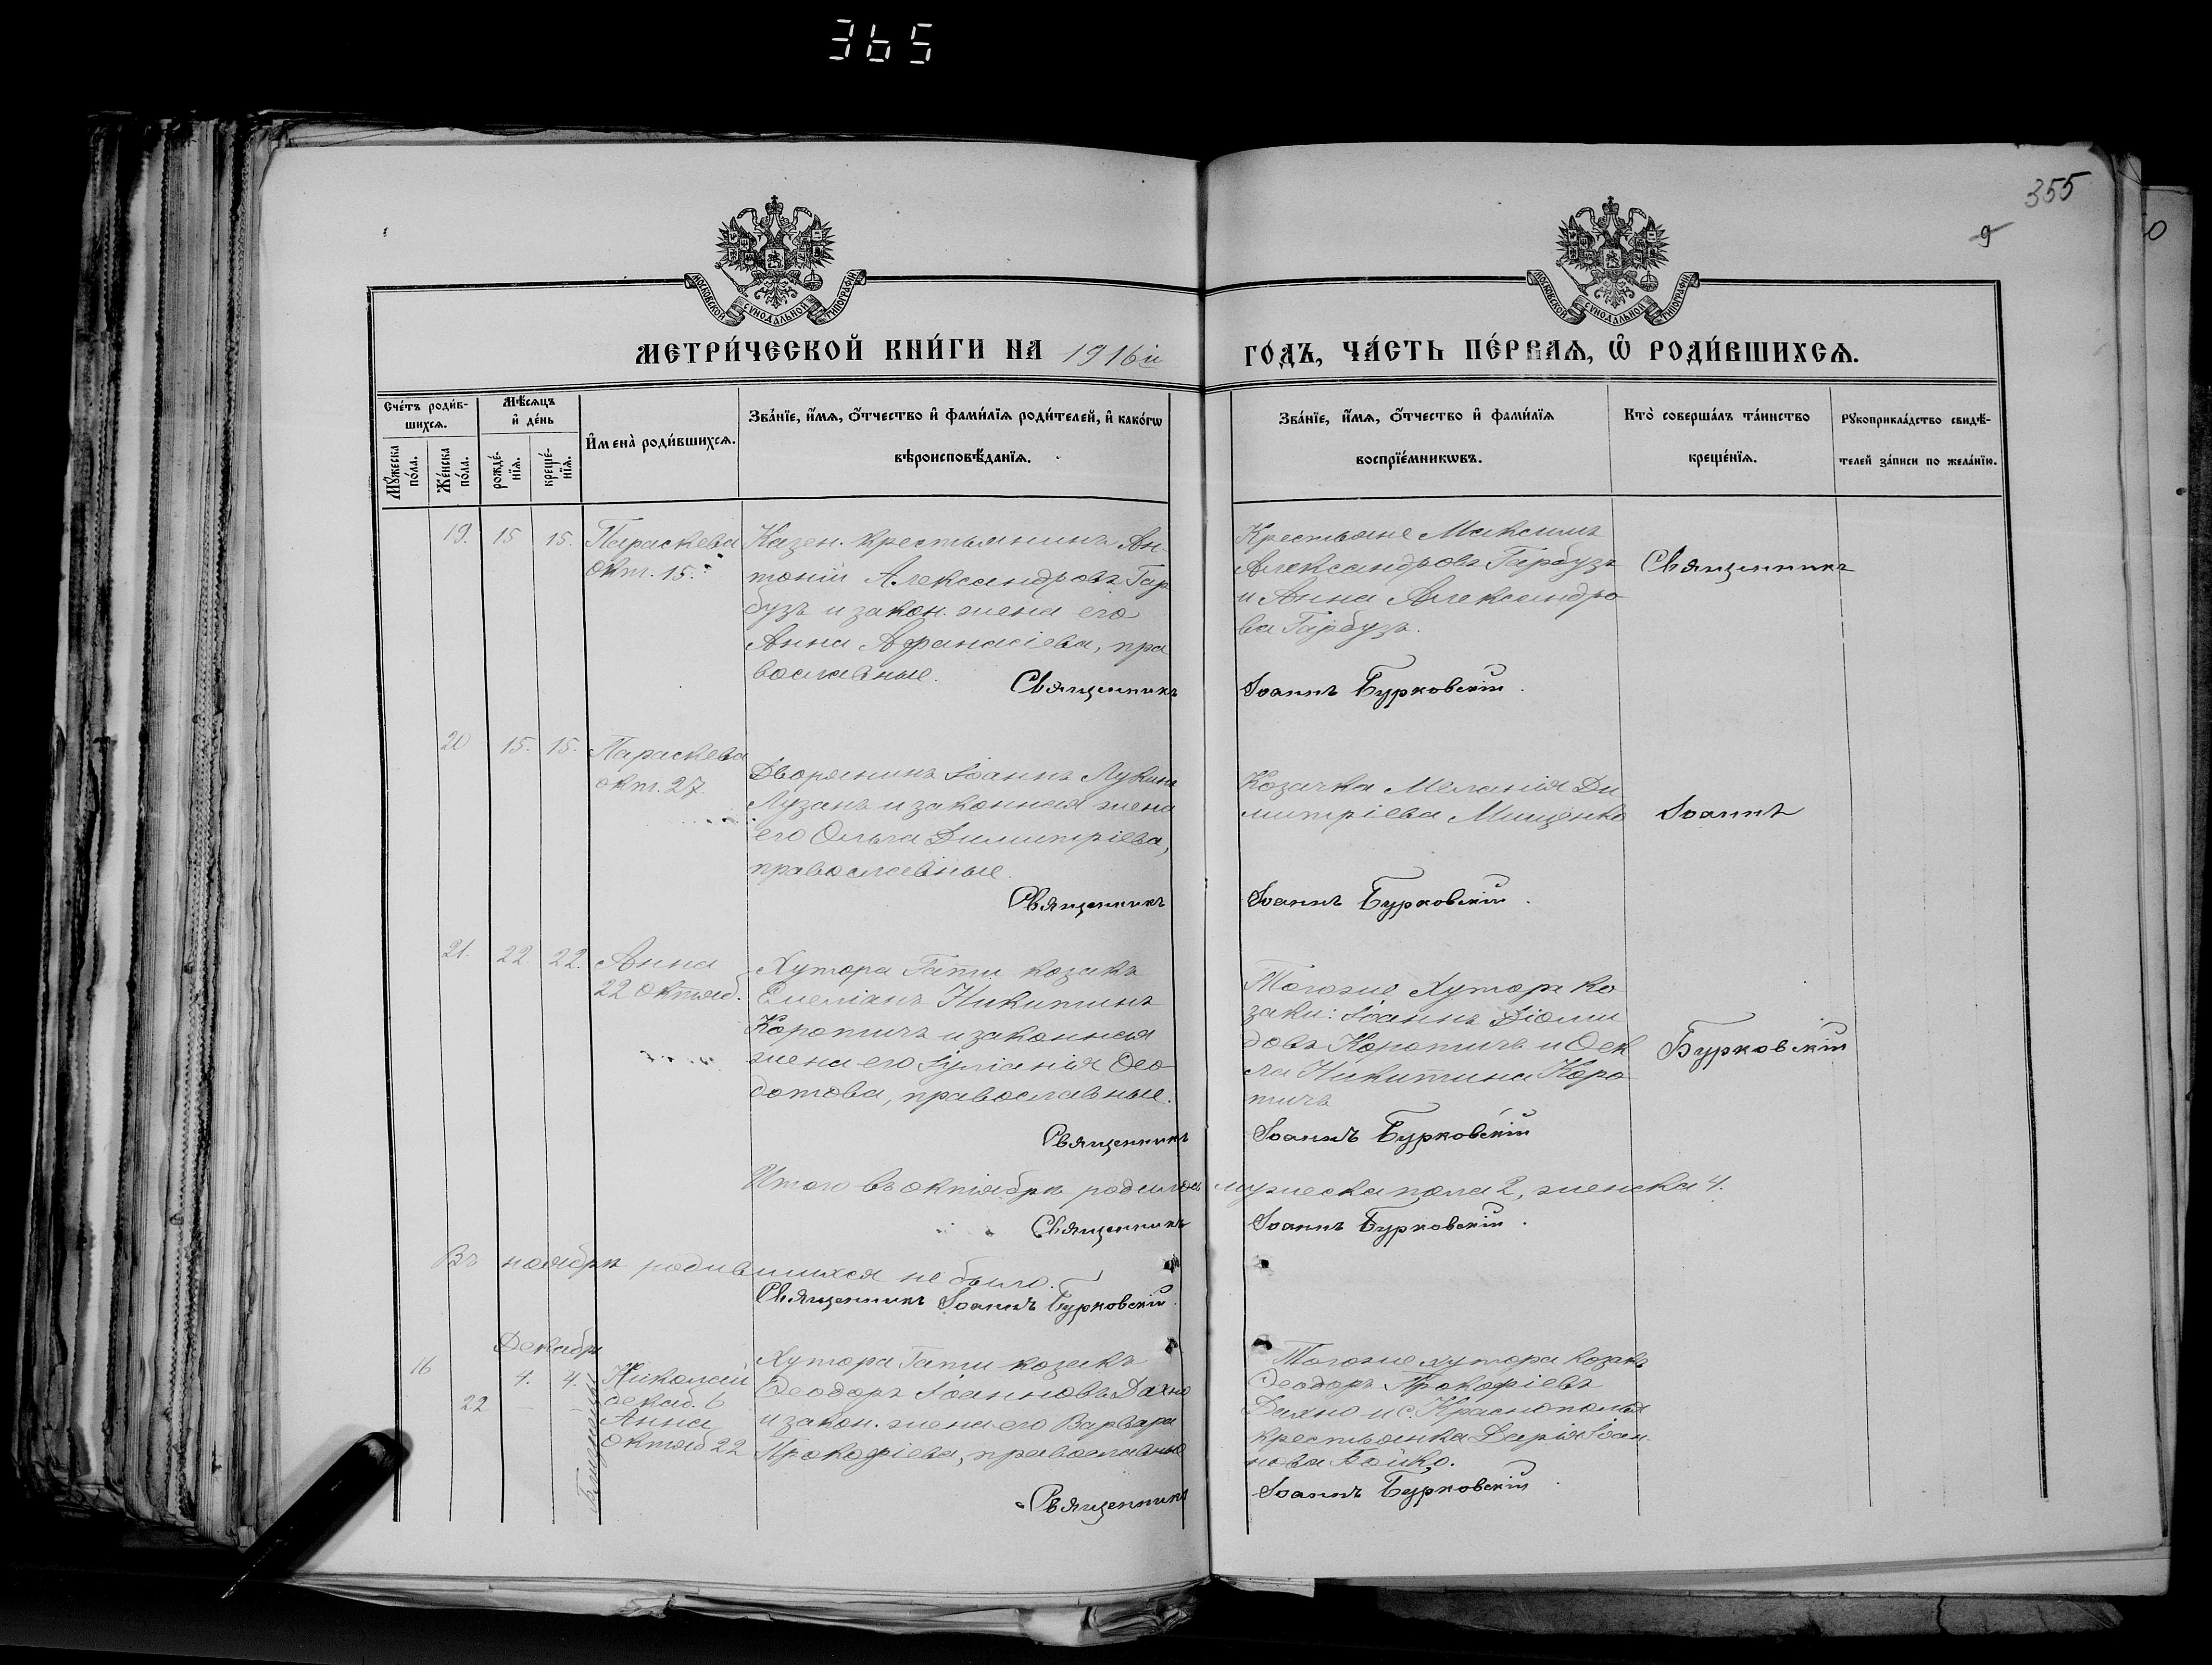 365
355
9
МОСКОВСКОЙ СѴНОДАЛЬНОЙ ТИПОГРАФІИ
МОСКОВСКОЙ СѴНОДАЛЬНОЙ ТИПОГРАФІИ
МЕТРИ́ЧЕСКОЙ КНИ́ГИ НА 1916й ГО́ДЪ, ЧА́СТЬ ПЕ́РВАѦ, Ѡ РОДИ́ВШИХСѦ.
Сче́тъ роди́в-
шихсѧ.
Мꙋ́жеска
по́ла.
Же́нска
по́ла.
Мѣ́сѧцъ
и҆ де́нь
рожде́-
нїѧ.
креще́-
нїѧ.
И҆мена̀ роди́вшихсѧ.
Зва́нїе, и҆́мѧ, ѻ҆́тчество и҆ фами́лїѧ роди́телей, и҆ како́гѡ
вѣроисповѣ́данїѧ.
Зва́нїе, и҆́мѧ, ѻ҆́тчество и҆ фами́лїѧ
воспрїе́мникѡвъ.
Кто̀ соверша́лъ та́инство
креще́нїѧ.
Рꙋкоприкла́дство свидѣ́-
телей за́писи по жела́нїю.
19. 15 15. Параскева
Окт. 15.
Казен. крестьянинъ Ан-
тоній Александровъ Гар
бузъ и закон. жена его
Анна Афанасіева, пра
вославные.
Священникъ
Крестьяне Максимъ
Александровъ Гарбузъ
и Анна Александро
ва Гарбузъ.
Іоаннъ Бурковскій.
Священникъ
20 15. 15. Параскева
окт. 27.
Дворянинъ Іоаннъ Лукинъ
Лузанъ и законная жена
его Ольга Димитріева,
православные.
Священникъ
Козачка Меланія Ди
митріева Мищенко
Іоаннъ Бурковскій.
Іоаннъ
21. 22. 22. Анна
22 октяб.
Хутора Гати козакъ
Емеліанъ Никитинъ
Коротичъ и законная
жена его Іуліанія Ѳео
дотова, православные.
Священникъ
Тогоже хутора ко
заки: Іоаннъ Діоми
довъ Коротичъ и Ѳек
ла Никитина Коро
тичъ
Іоаннъ Бурковскій
Бурковскій
Итого въ октябрѣ родилось мужеска пола 2, женска 4.
Священникъ Іоаннъ Бурковскій.
Въ ноябрѣ родившихся не было.
Священникъ Іоаннъ Бурковскій.
Декабрь
16 4. 4. Николай
декаб. 6
22 – – Анна
Октяб 22
Близнецы
Хутора Гати козакъ
Ѳеодоръ Іоанновъ Дахно
и закон. жена его Варвара
Прокофіева, православные
Священникъ
Тогоже хутора козакъ
Ѳеодоръ Прокофіевъ
Дахно и с. Краснополья
крестьянка Дарія Іоан-
нова Бойко.
Іоаннъ Бурковскій